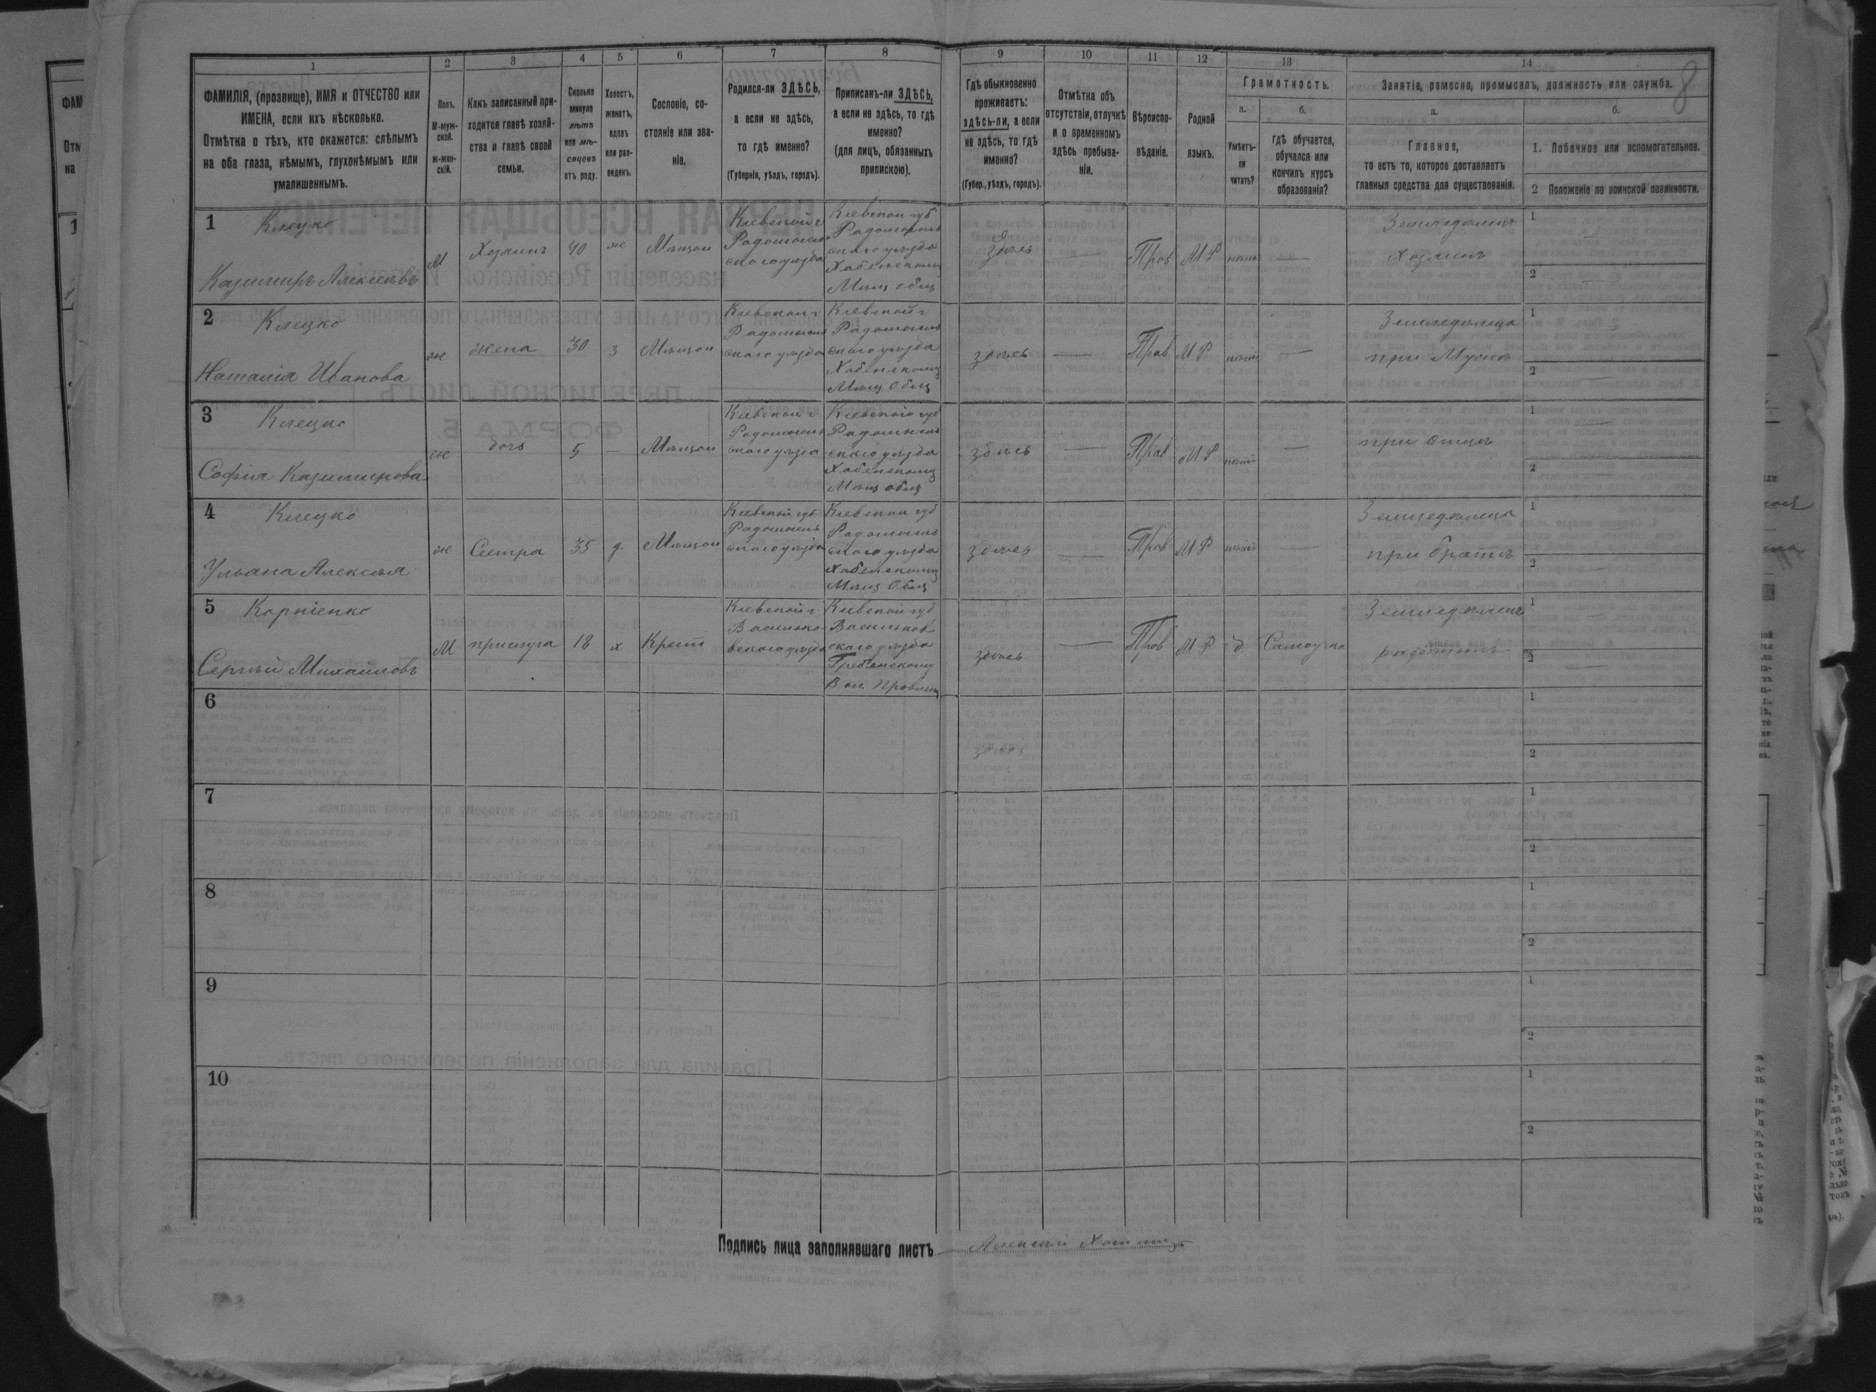 8
1
2
3
4
5
6
7
8
9
10
11
12
13
14
ФАМИЛІЯ, (прозвище), ИМЯ и ОТЧЕСТВО или
ИМЕНА, если ихъ нѣсколько.
Отмѣтка о тѣхъ, кто окажется: слѣпымъ
на оба глаза, нѣмымъ, глухонѣмымъ или
умалишеннымъ.
Полъ.
М-муж-
ской.
ж-жен-
скій.
Какъ записанный при-
ходится главѣ хозяй-
ства и главѣ своей
семьи.
Сколько
минуло
лѣтъ
или мѣ-
сяцевъ
отъ роду.
Холостъ,
женатъ,
вдовъ
или раз-
веденъ.
Сословіе, со-
стояніе или зва-
ніе.
Родился-ли ЗДѢСЬ,
а если не здѣсь,
то гдѣ именно?
(Губернія, уѣздъ, городъ).
Приписанъ-ли ЗДѢСЬ,
а если не здѣсь, то гдѣ
именно?
(для лицъ, обязанныхъ
припискою).
Гдѣ обыкновенно
проживаетъ:
здѣсь-ли, а если
не здѣсь, то гдѣ
именно?
(Губер., уѣздъ, городъ).
Отмѣтка объ
отсутствіи, отлучкѣ
и о временномъ
здѣсь пребыва-
ніи.
Вѣроиспо-
вѣданіе.
Родной
языкъ.
Грамотность.
а.
Умѣетъ-
ли
читать?
б.
гдѣ обучается,
обучался или
кончилъ курсъ
образованія?
Занятіе, ремесло, промыселъ, должность или служба.
а.
Главное,
то есть то, которое доставляетъ
главныя средства для существованія.
б.
1. Побочное или вспомогательное.
2 Положеніе по воинской повинности.
1
Клецко
Казимиръ Алексѣевъ
М
Хозяинъ
40
ж
Мѣщан
Кіевской г
Радомысль
скаго уѣзда
Кіевской губ
Радомысль
скаго уѣзда
Хабенскому
Мѣщ общ
здѣсь
—
Прав
М Р
—
Земледѣлецъ
хозяинъ
1
2
2
Клецко
Наталія Иванова
ж
жена
30
з
Мѣщан
Кіевской г
Радомысль
скаго уѣзда
Кіевской г
Радомысль
скаго уѣзда
Хабенскому
Мѣщ Общ
здѣсь
—
Прав
М Р
—
Земледѣлица
при Мужѣ
1
2
3
Клецко
Софія Казимирова
ж
дочь
5
—
Мѣщан
Кіевской г
Радомысль
скаго уѣзда
Кіевской губ
Радомысль
скаго уѣзда
Хабенскому
Мѣщ общ
здѣсь
—
Прав
М Р
—
при отцѣ
1
2
4
Клецко
Ульана Алексѣя
ж
Сестра
35
д.
Мѣщан
Кіевской губ
Радомысль
скаго уѣзда
Кіевской губ
Радомысль
скаго уѣзда
Хабенскому
Мѣщ Общ
здѣсь
—
Прав
М Р
—
Земледѣлица
при братѣ
1
2
5
Корніенко
Сергѣй Михайловъ
М
прислуга
18
х
Крест
Кіевской г
Василько
вскаго уѣзда
Кіевской губ
Васильков
скаго уѣзда
Гребенскому
Вол.
здѣсь
—
Прав
М Р
д
Самоучка
Земледѣлецъ
1
2
6
здѣсь
1
2
7
1
2
8
1
2
9
1
2
10
1
2
Подпись лица заполнявшаго листъ Алексѣй